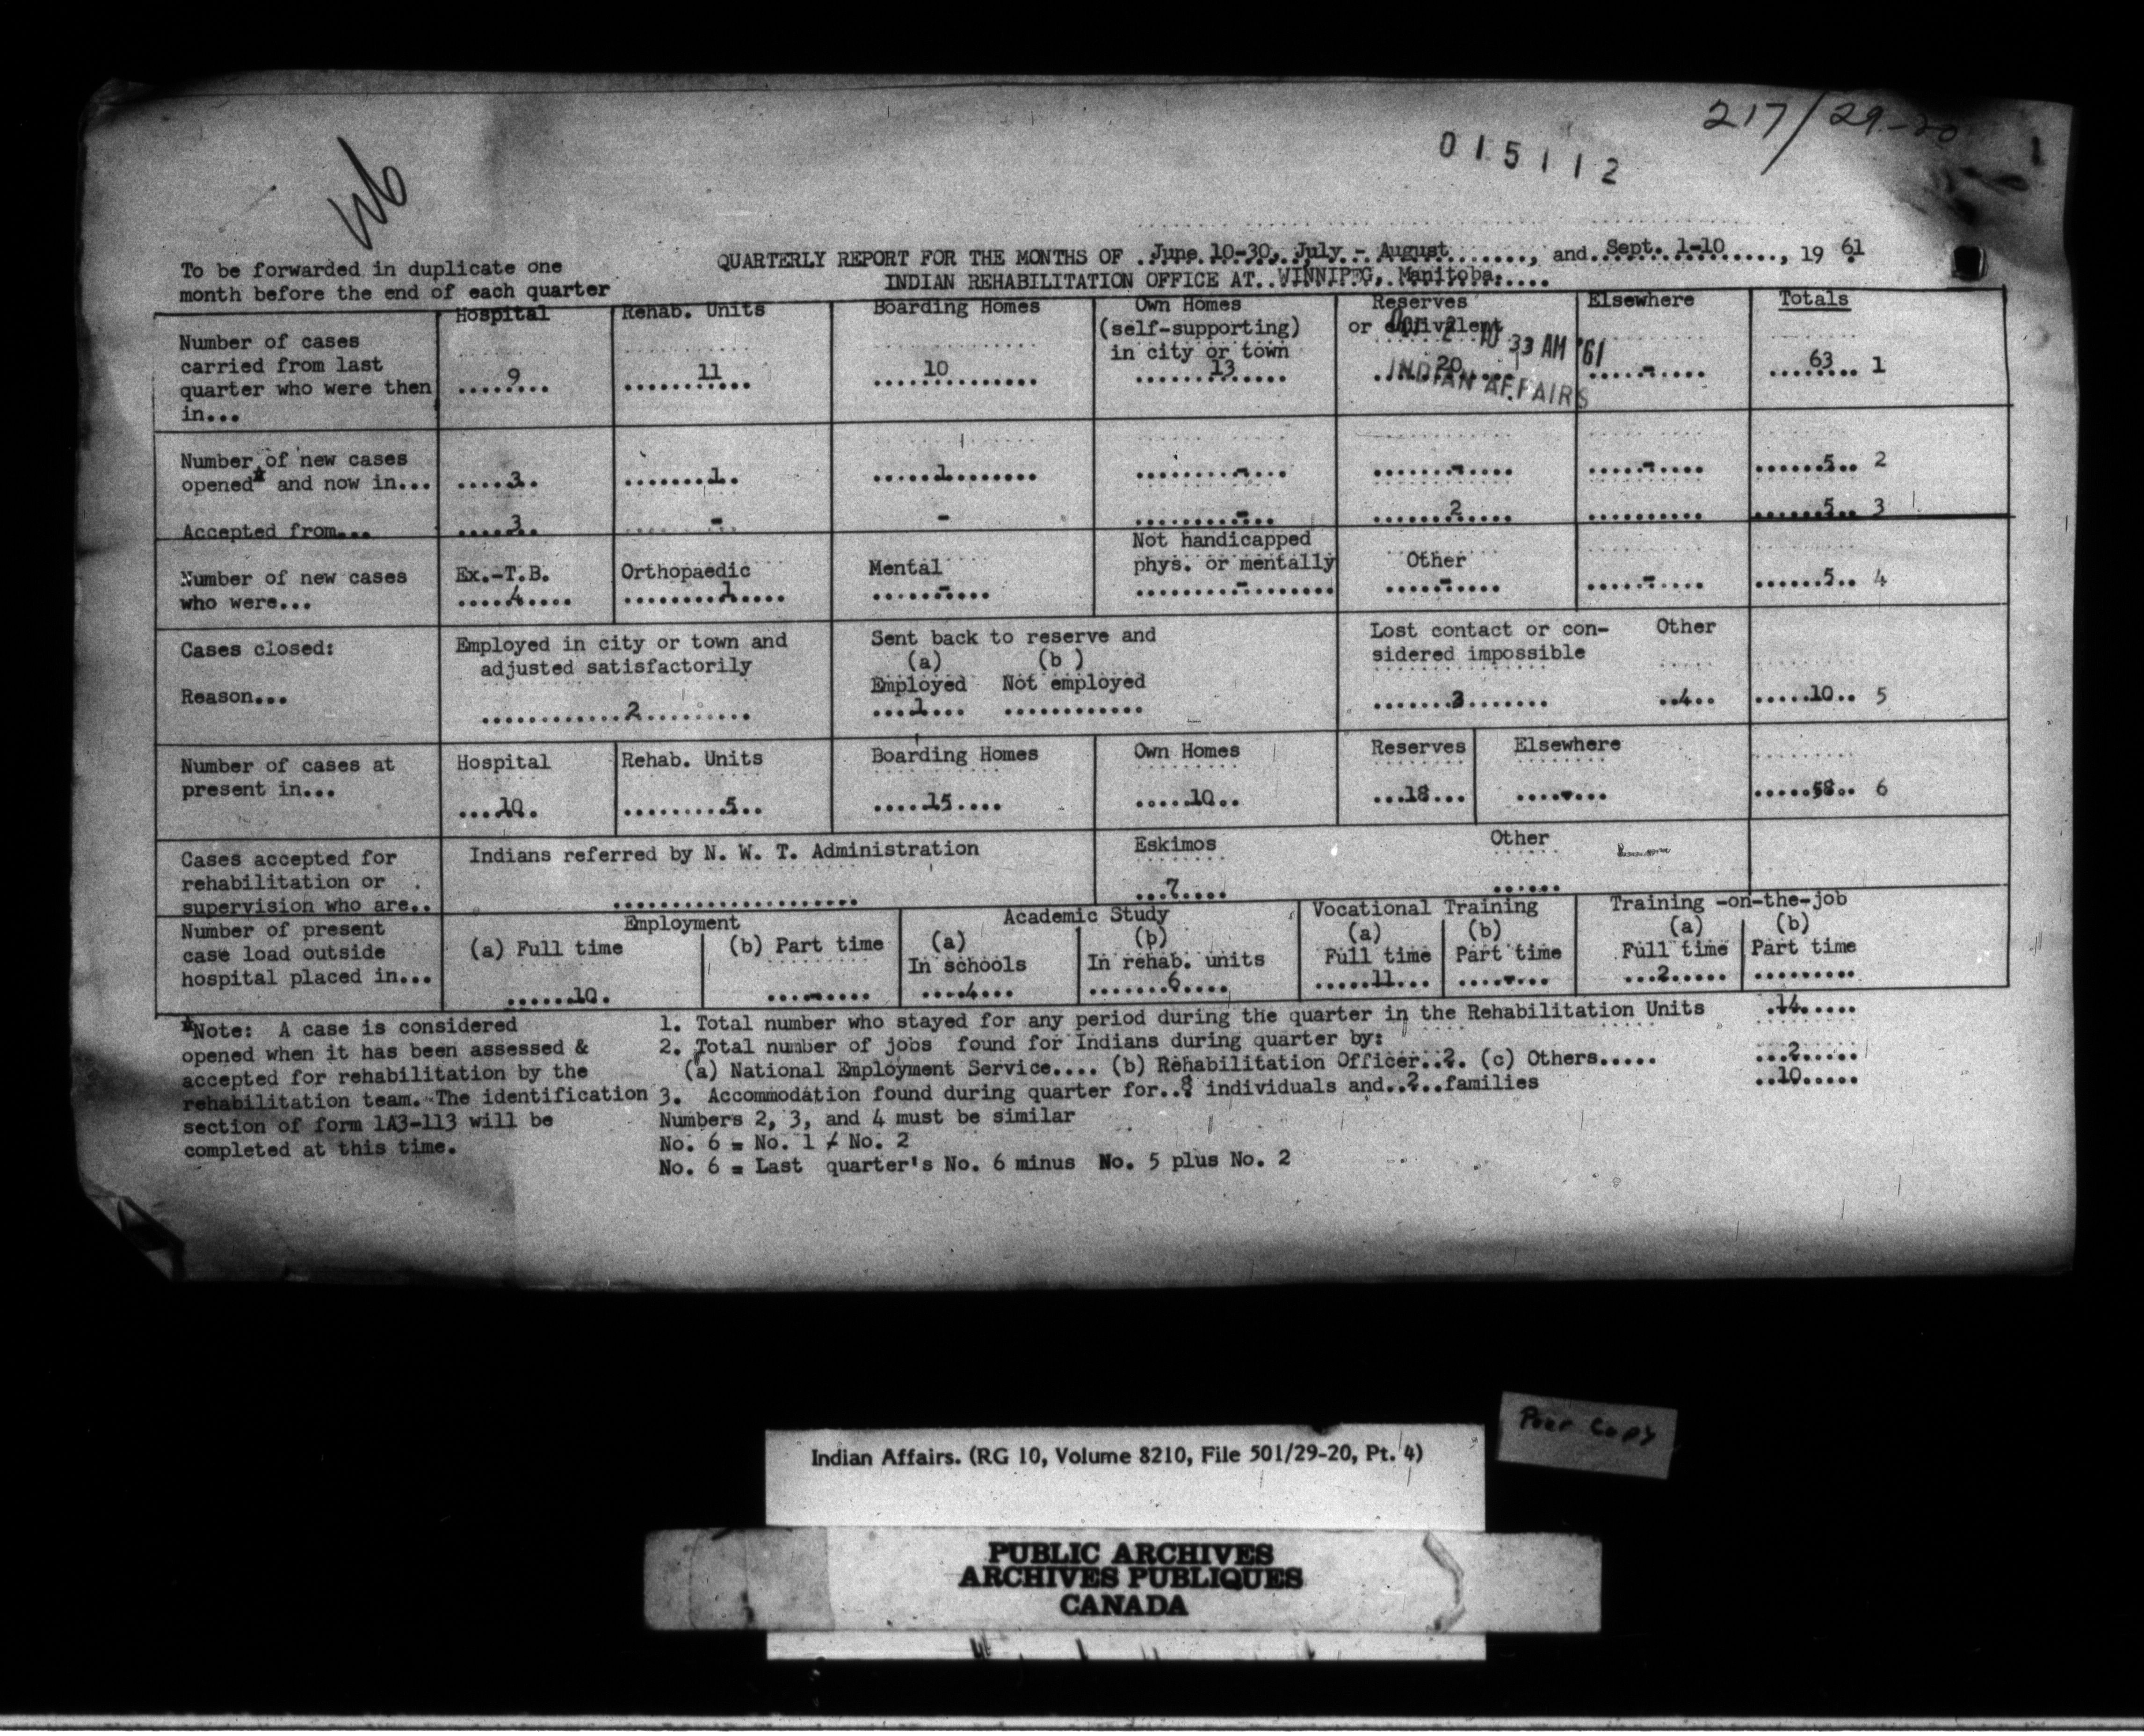 217/29-20
015112
To be forwarded in duplicate one
month before the end of each quarter
QUARTERLY REPORT FOR THE MONTHS OF ..June 10-30, July - August......., and.Sept. 1-10....., 19 61
INDIAN REHABILITATION OFFICE AT..WINNIPEG, Manitoba.....
Hospital Rehab. Units Boarding Homes Own Homes (self-supporting) in city or town Reserves or equivalent Elsewhere Totals
2 10 33 AM '61
INDIAN AFFAIRS
Number of cases
carried from last
quarter who were then
in...
9 11 10 13 20 - 63 1
Number of new cases
opened* and now in...
3 1 1 - - - 5 2
Accepted from... 3 - - - 2 5 3
Number of new cases
who were...
Ex.-T.B. Orthopaedic Mental Not handicapped phys. or mentally Other
4 1 - - - - 5 4
Cases closed:
Reason...
Employed in city or town and
adjusted satisfactorily
2
Sent back to reserve and
(a) (b )
Employed Not employed
1
Lost contact or con-
sidered impossible
3
Other
4
10 5
Number of cases at
present in...
Hospital Rehab. Units Boarding Homes Own Homes Reserves Elsewhere
10 5 15 10 18 - 58 6
Cases accepted for
rehabilitation or
supervision who are..
Indians referred by N. W. T. Administration
Eskimos
7
Other
Number of present
case load outside
hospital placed in...
Employment
(a) Full time (b) Part time
10 -
Academic Study
(a) (b)
In schools In rehab. units
4 6
Vocational Training
(a) (b)
Full time Part time
11 -
Training -on-the-job
(a) (b)
Full time Part time
2
*Note: A case is considered
opened when it has been assessed &
accepted for rehabilitation by the
rehabilitation team. The identification
section of form 1A3-113 will be
completed at this time.
1. Total number who stayed for any period during the quarter in the Rehabilitation Units .14.....
2. Total number of jobs found for Indians during quarter by:
(a) National Employment Service.... (b) Rehabilitation Officer..2. (c) Others..... ...2.....
3. Accommodation found during quarter for..8 individuals and..2..families ..10.....
Numbers 2, 3, and 4 must be similar
No. 6 = No. 1 ≠ No. 2
No. 6 = Last quarter's No. 6 minus No. 5 plus No. 2
Indian Affairs. (RG 10, Volume 8210, File 501/29-20, Pt. 4)
Poor Copy
PUBLIC ARCHIVES
ARCHIVES PUBLIQUES
CANADA